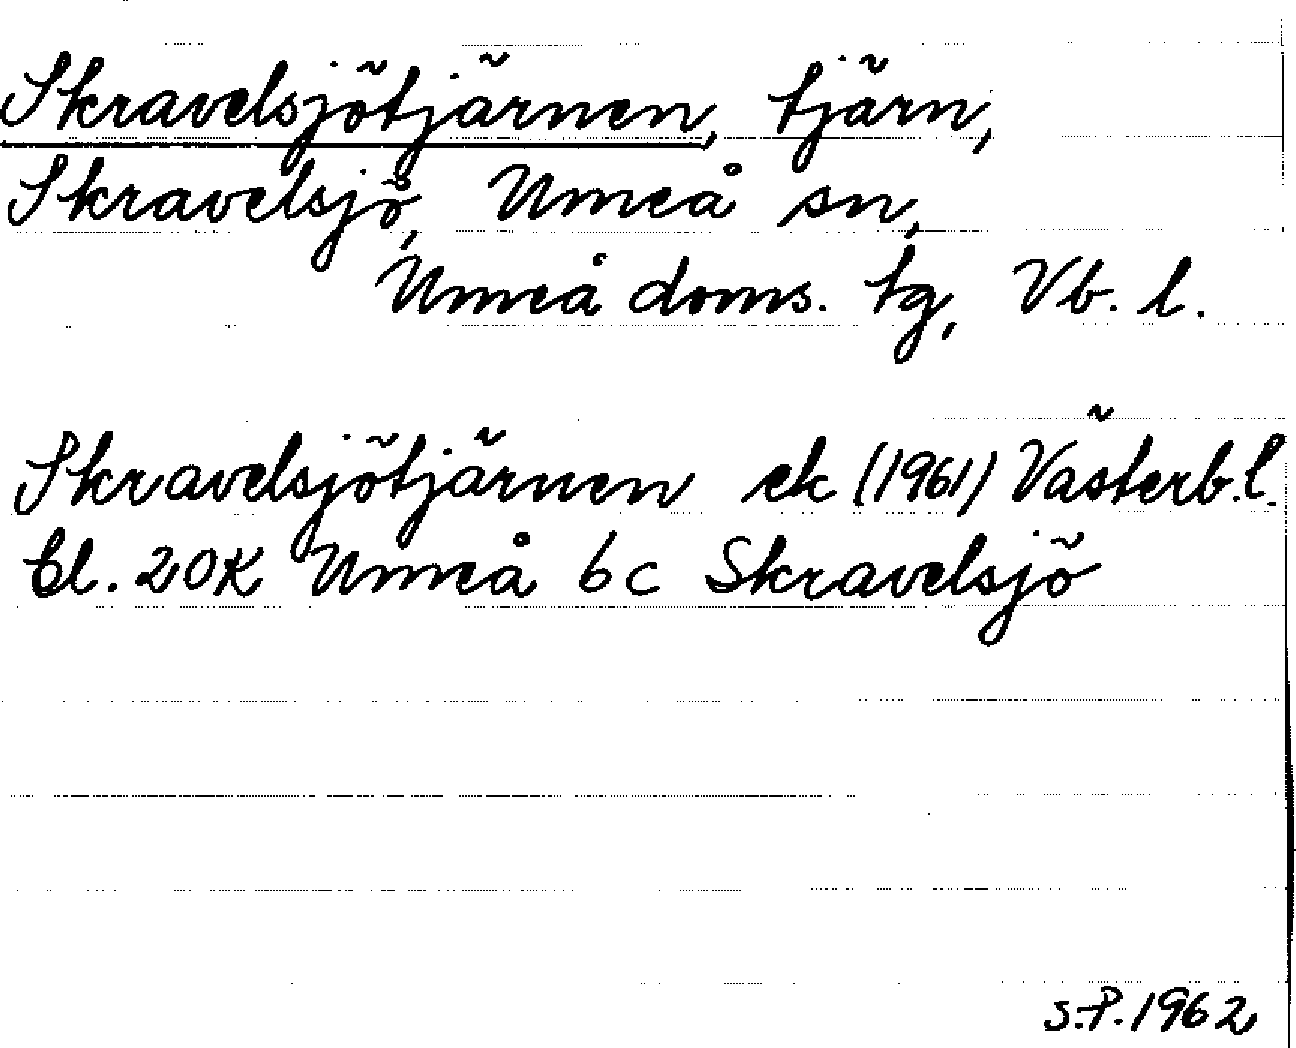 Skravelsjötjärnen, tjärn,
Skravelsjö, Umeå sn,
Umeå doms. tg, Vb. l.
Skravelsjötjärnen ek (1961) Västerb. l.
bl. 20K Umeå 6c Skravelsjö
S.P. 1962